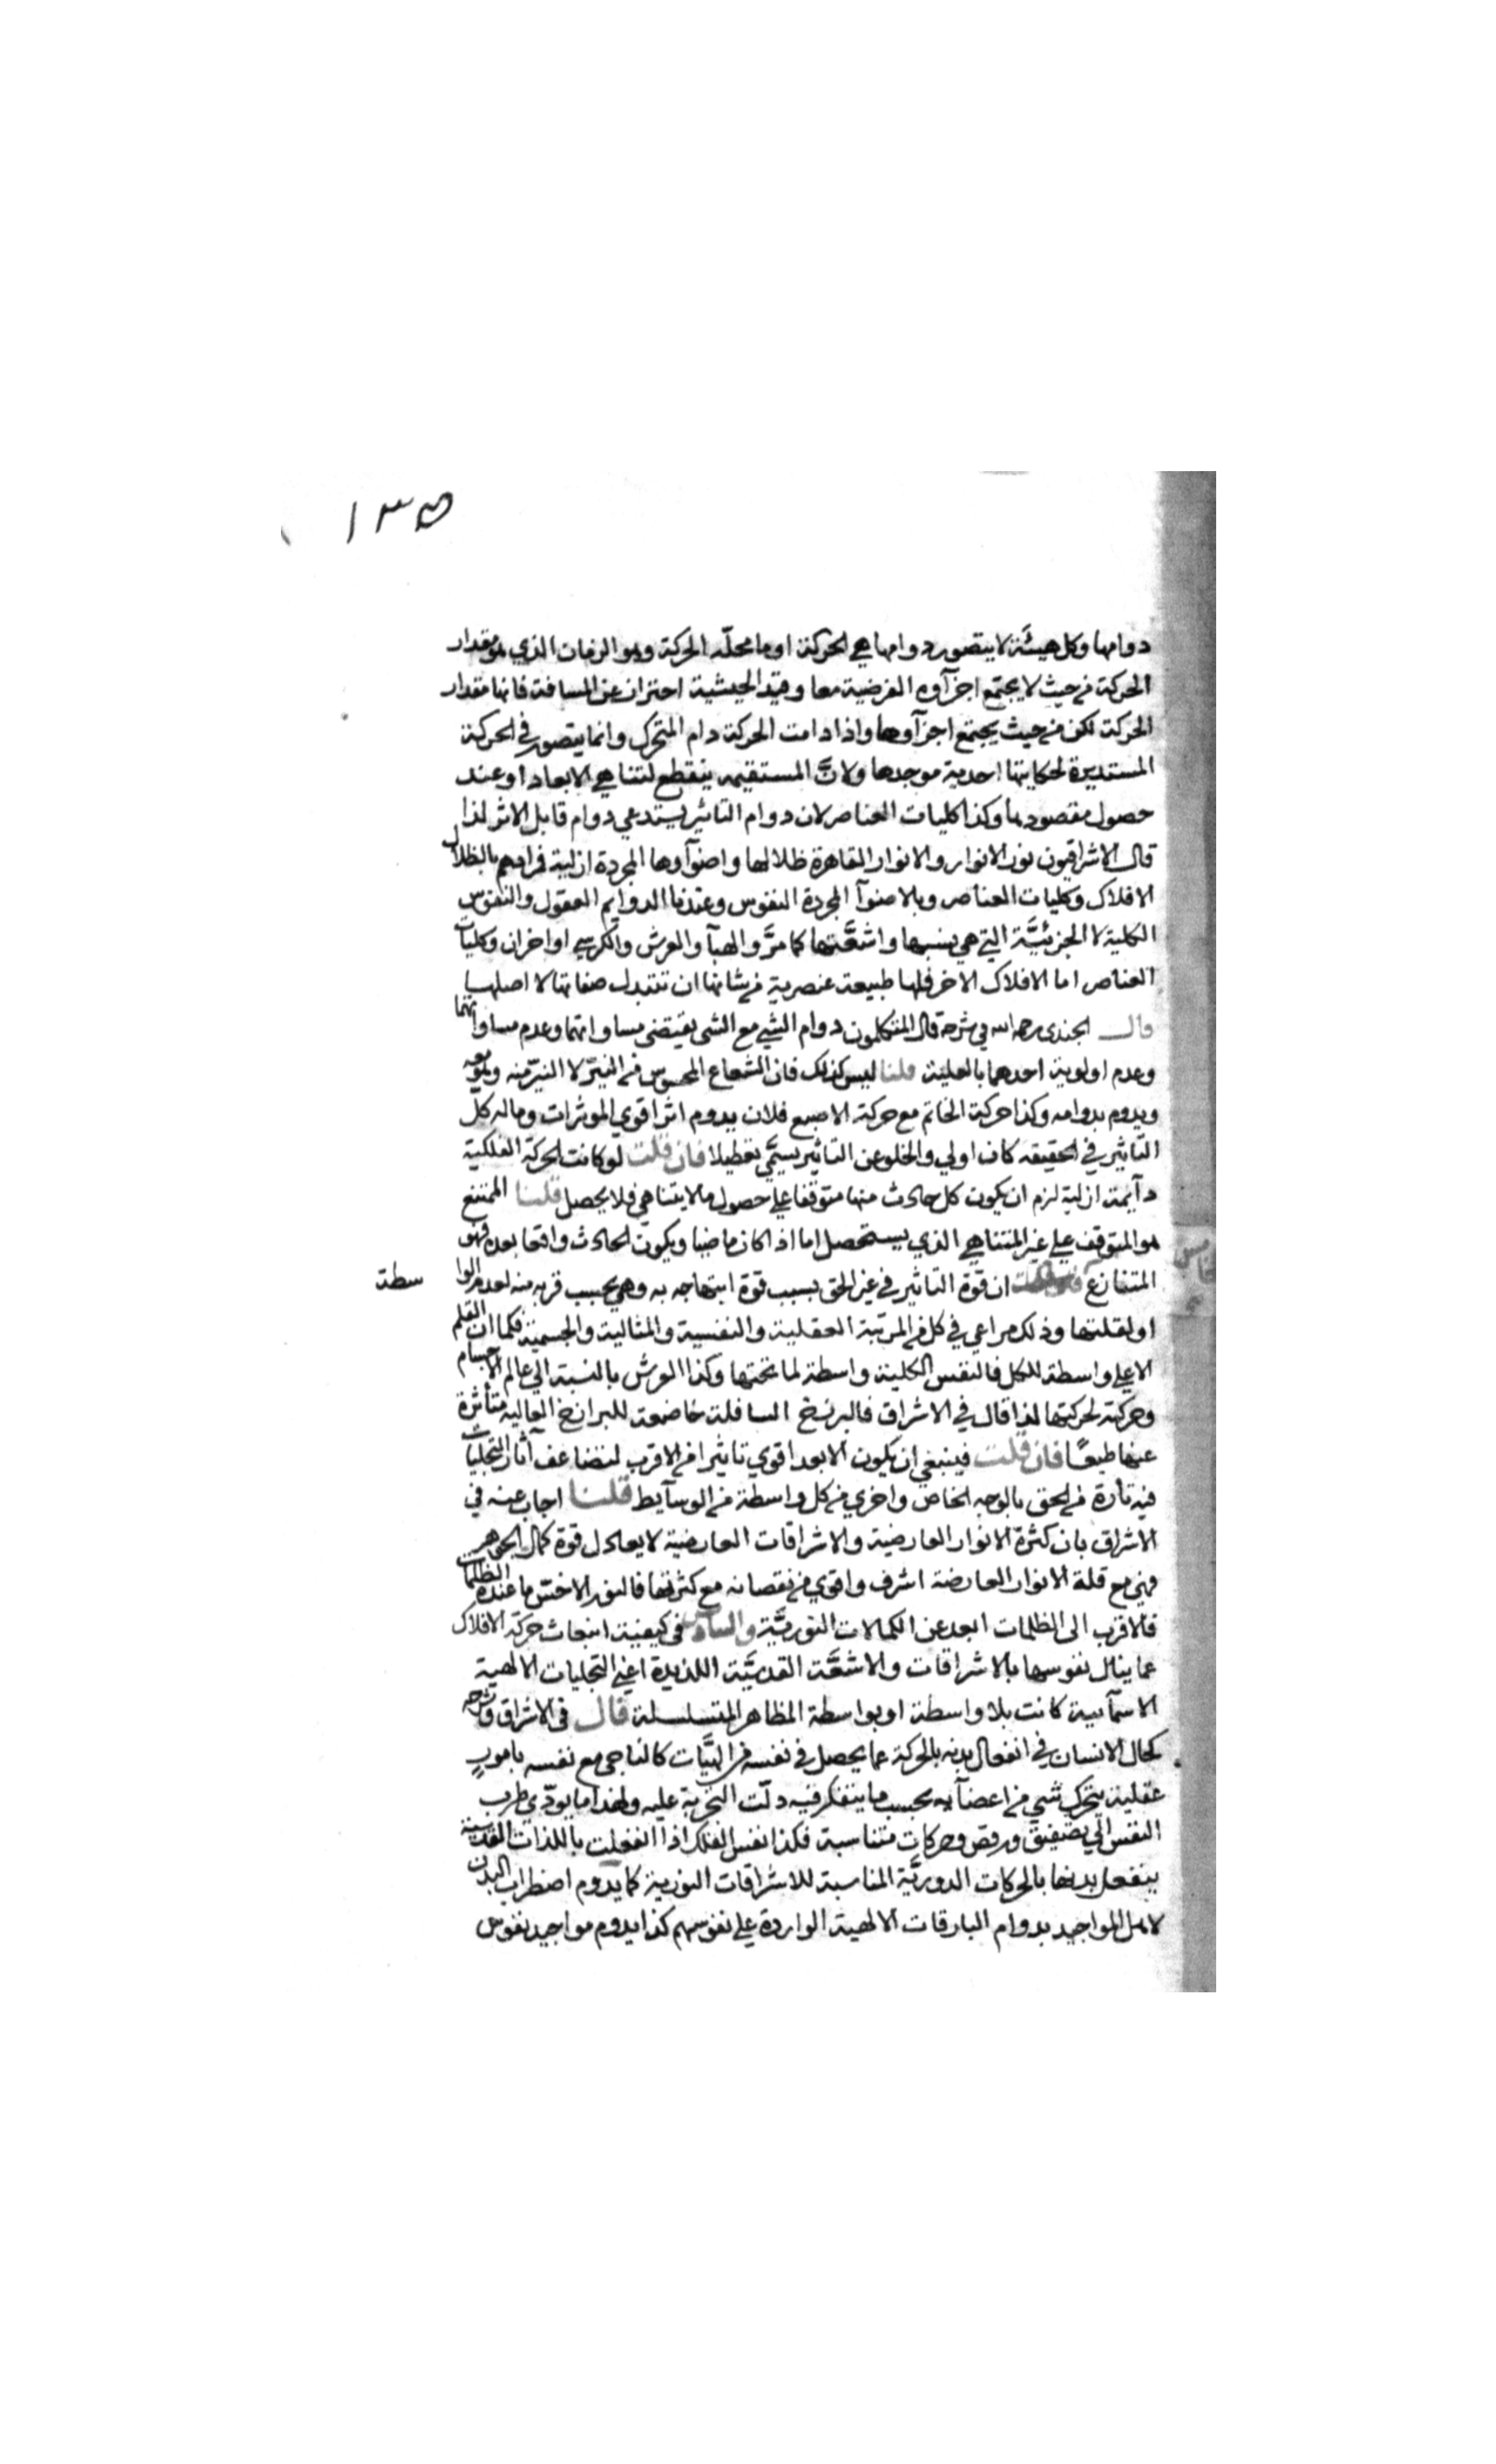 ١٣٥
دوامها وكل هيئة لا يتصور دوامها هي الحركة او ما محله الحركة وهو الزمان الذي هو مقدار
الحركة من حيث لا يجتمع اجزآوه الفرضية معا وقيد الحيثية احتراز عن المسافة فانها مقدار
الحركة لكن من حيث يجتمع اجزآوها واذا دامت الحركة دام المتحرك وانما يتصور في الحركة
المستديرة لحكايتها احدية موجدها ولانَّ المستقيمه ينقطع لتناهي الابعاد او عند
حصول مقصودها وكذا كليات العناصر لان دوام التاثير يستدعي دوام قابل الاثر لذا
قال الاشراقيون نور الانوار والانوار القاهرة ظلالها واضوآوها المجردة ازلية فمرادهم بالظلال
الافلاك وكليات العناصر وبالاضوآ المجردة النفوس وعندنا الدوايم العقول والنفوس
الكلية لا الجزئيَّة التي هي نسبها واشعَّتها كما مرَّ والهبآ والعرش والكرسي او اخران وكليات
العناصر اما الافلاك الاخر فلها طبيعة عنصرية من شانها ان تتبدل صفاتها لا اصلها
قال الجندي رحمه الله في شرحه قال المتكلمون دوام الشي مع الشي يقتضي مساواتهما وعدم مساواتهما
وعدم اولوية احدهما بالعلية قلنا ليس كذلك فان الشعاع المحسوس من النيّر لا النيّر منه وهو معه
ويدوم بدوامه وكذا حركة الخاتم مع حركة الاصبع فلان يدوم اثر اقوي الموثرات وماله كل
التاثير في الحقيقه كان اولي والخلو عن التاثير يسمَّي تعطيلا فان قلت لو كانت الحركة الفلكية
دآيمة ازلية لزم ان يكون كل حادث منها متوقفا علي حصول ما لا يتناهي فلا يحصل قلنا الممتنع
هو المتوقف علي غير المتناهي الذي يستحصل اما اذا كان ماضيا ويكون الحادث واقعا بعده فهو
المتنازع ان قوة التاثير في غير الحق بسبب قوة ابتهاجه به وهي بحسب قربه منه لعدم الوا سطة
او لقلتها وذلك مراعي في كل من المرتبة العقلية والنفسية والمثالية والجسمية فكما ان القلم
الاعلي واسطة للكل فالنفس الكلية واسطة لما تحتها وكذا العرش بالنسبة الي عالم الاجسام
وحركته لحركتها لذا قال في الاشراق فالبرزخ السافلة خاضعة للبرازخ العالية متأثرة
عنها طبعًا فان قلت فينبغي ان يكون الابعد اقوي تاثيرا من الاقرب لتضاعف آثار التجليات
فيه تارة من الحق بالوجه الخاص واخري من كل واسطة من الوسآيط قلنا اجاب عنه في
الاشراق بان كثرة الانوار العارضية والاشراقات العارضية لا يعادل قوة كمال الجوهر
فهي مع قلة الانوار العارضة اشرف واقوي من نقصانه مع كثرتها فالنور الاخسّ ما عنده الظلمات
فالاقرب الى الظلمات ابعد عن الكمالات النوريَّة والسادس في كيفية انبعاث حركة الافلاك
عما ينال نفوسها بالاشراقات والاشعَّة القدسيَّة اللذيذة اعني التجليات الالهية
الاسمآيية كانت بلا واسطة او بواسطة المظاهر المتسلسلة قال في الاشراق وشرحه
كحال الانسان في انفعال بدنه بالحركة عما يحصل في نفسه من الهيَّات كالناجي مع نفسه بامورٍ
عقلية يتحرك شي من اعضآيه بحسب ما يتفكر فيه دلّت التجربة عليه ولهذا ما يودّي طرب
النفس الي تصفيق ورقص وحركات متناسبة فكذا نفس الفلك اذا انفعلت باللذات القدسية
ينفعل بدنها بالحركات الدوريَّة المناسبة للاشراقات النورية كما يدوم اضطراب البدن
لاهل المواجيد بدوام البارقات الالهية الواردة علي نفوسهم كذا يدوم مواجيد نفوس